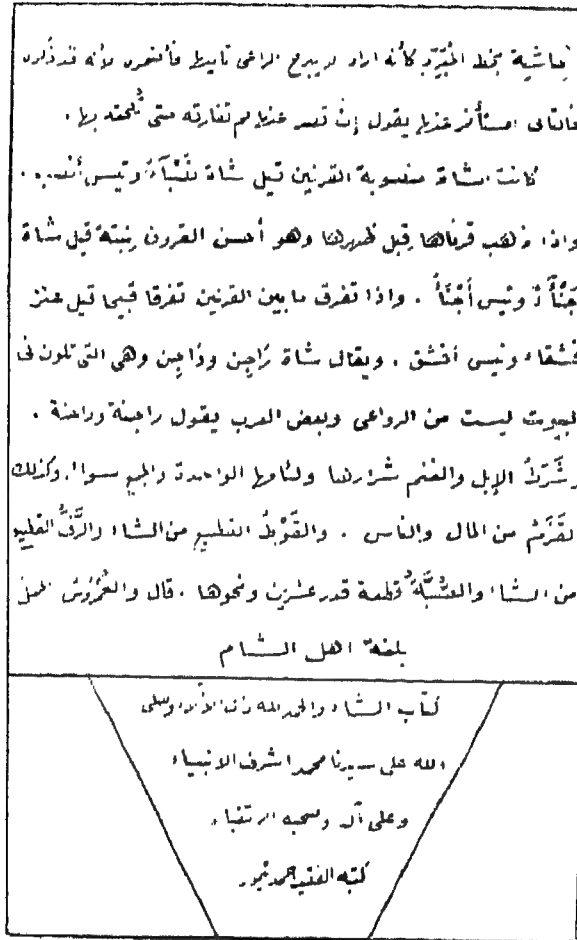 حاشية بخط المبرّد كأنه اراد لا يبرح الراعى تابعا
فالتالى عنزها يقول إن تعسر عنزها لم تفارقه حتى تلحقه بها .
كانت الشاة منصوبة القرنين قيل شاة نَصْبَآءُ وتيس أنصب .
واذا ذهب قرناها قِبل ظهرها وهو أحسن القرون نِبتة قيل شاة
جَنْآءُ وتيس أَجْنَأُ . واذا تفرق ما بين القرنين تفرقا قبيحا قيل عنز
فشقاء وتيس أفشق . ويقال شاة رَاجِن ودَاجِن وهى التى تكون فى
البيوت ليست من الرواعى وبعض العرب يقول راجنة وداجنة .
وشَرَطُ الإبل والغنم شرارها ولئامها الواحدة والجميع سواء وكذلك
القَزَمُ من المال والناس . والقَوْطُ القطيع من الشاء والرَّفُّ القطيع
من الشاء والعُنَّةُ قطعة قدر عشرين ونحوها . قال والعُمْرُوسُ الحمل
بلغة اهل الشام
كتاب الشاء والحمد لله ذى الآلاء وصلى
الله على سيدنا محمد اشرف الانبياء
وعلى آله وصحبه الاتقياء
كتبه الفقير احمد تيمور